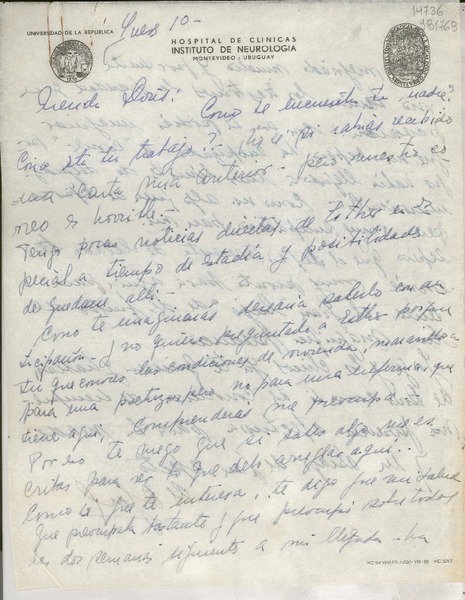 14736
981768
UNIVERSIDAD DE LA REPUBLICA
HOSPITAL DE CLINICAS
INSTITUTO DE NEUROLOGIA
MONTEVIDEO - URUGUAY
10 -
Querida Doris: Como se encuentra tu madre?
Cómo está tu trabajo? No sé si habrás recibido
una carta mía anterior - pero nuestro co
rreo es horrible.
Tengo pocas noticias directas de Esther en es
pecial a tiempo de estadía y posibilidades
de quedarse allí.
Como te imaginarás desearía saberlo con an
ticipación - y no quiero preguntado a Esther porque
sin que conozca las condiciones de vivienda, maravillosa
para una pero no para una enferma que
tiene aquí, comprenderás me preocupa
Por eso te ruego que si sabes algo me es
cribas para ver lo que debo arreglar aquí.
Como sé que te interesa, te digo que mi salud
que preocupaba bastante y que preocupó sobre todo
las dos semanas siguientes a mi llegada - ha